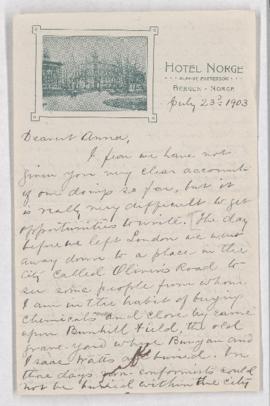 HOTEL NORGE
BERGEN - NORGE
July 23rd 1903
Dearest Anna,
I fear we have not
given you very clear accounts
of our doings so far, but it
is really very difficult to get
opportunities to write. The day
before we left London we were
away down to a place in the
City called Olivers Road to
see some people from whom
I am in the habit of buying
chemicals and close by came
upon Bunhill Field, the old
grave-yard where Bunyan and
Isaac Watts are buried. In
those days non-conformists could
not be buried within the city